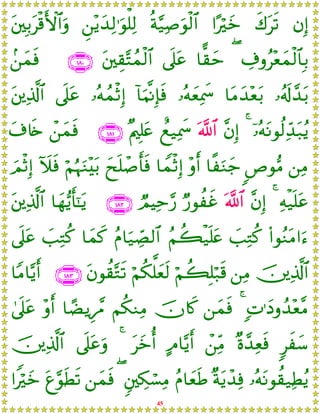 إِن تَرَكَ خَيْرًا ٱلْوَصِيَّةُ لِلْوَٰلِدَيْنِ وَٱلْأَقْرَبِينَ
بِٱلْمَعْرُوفِ ۖ حَقًّا عَلَى ٱلْمُتَّقِينَ ۝١٨٠ فَمَنۢ
بَدَّلَهُۥ بَعْدَمَا سَمِعَهُۥ فَإِنَّمَآ إِثْمُهُۥ عَلَى ٱلَّذِينَ
يُبَدِّلُونَهُۥٓ ۚ إِنَّ ٱللَّهَ سَمِيعٌ عَلِيمٌ ۝١٨١ فَمَنْ خَافَ
مِن مُّوصٍ جَنَفًا أَوْ إِثْمًا فَأَصْلَحَ بَيْنَهُمْ فَلَآ إِثْمَ
عَلَيْهِ ۚ إِنَّ ٱللَّهَ غَفُورٌ رَّحِيمٌ ۝١٨٢ يَٰٓأَيُّهَا ٱلَّذِينَ
ءَامَنُوا۟ كُتِبَ عَلَيْكُمُ ٱلصِّيَامُ كَمَا كُتِبَ عَلَى
ٱلَّذِينَ مِن قَبْلِكُمْ لَعَلَّكُمْ تَتَّقُونَ ۝١٨٣ أَيَّامًا
مَّعْدُودَٰتٍ ۚ فَمَن كَانَ مِنكُم مَّرِيضًا أَوْ عَلَىٰ
سَفَرٍ فَعِدَّةٌ مِّنْ أَيَّامٍ أُخَرَ ۚ وَعَلَى ٱلَّذِينَ
يُطِيقُونَهُۥ فِدْيَةٌ طَعَامُ مِسْكِينٍ ۖ فَمَن تَطَوَّعَ خَيْرًا
45